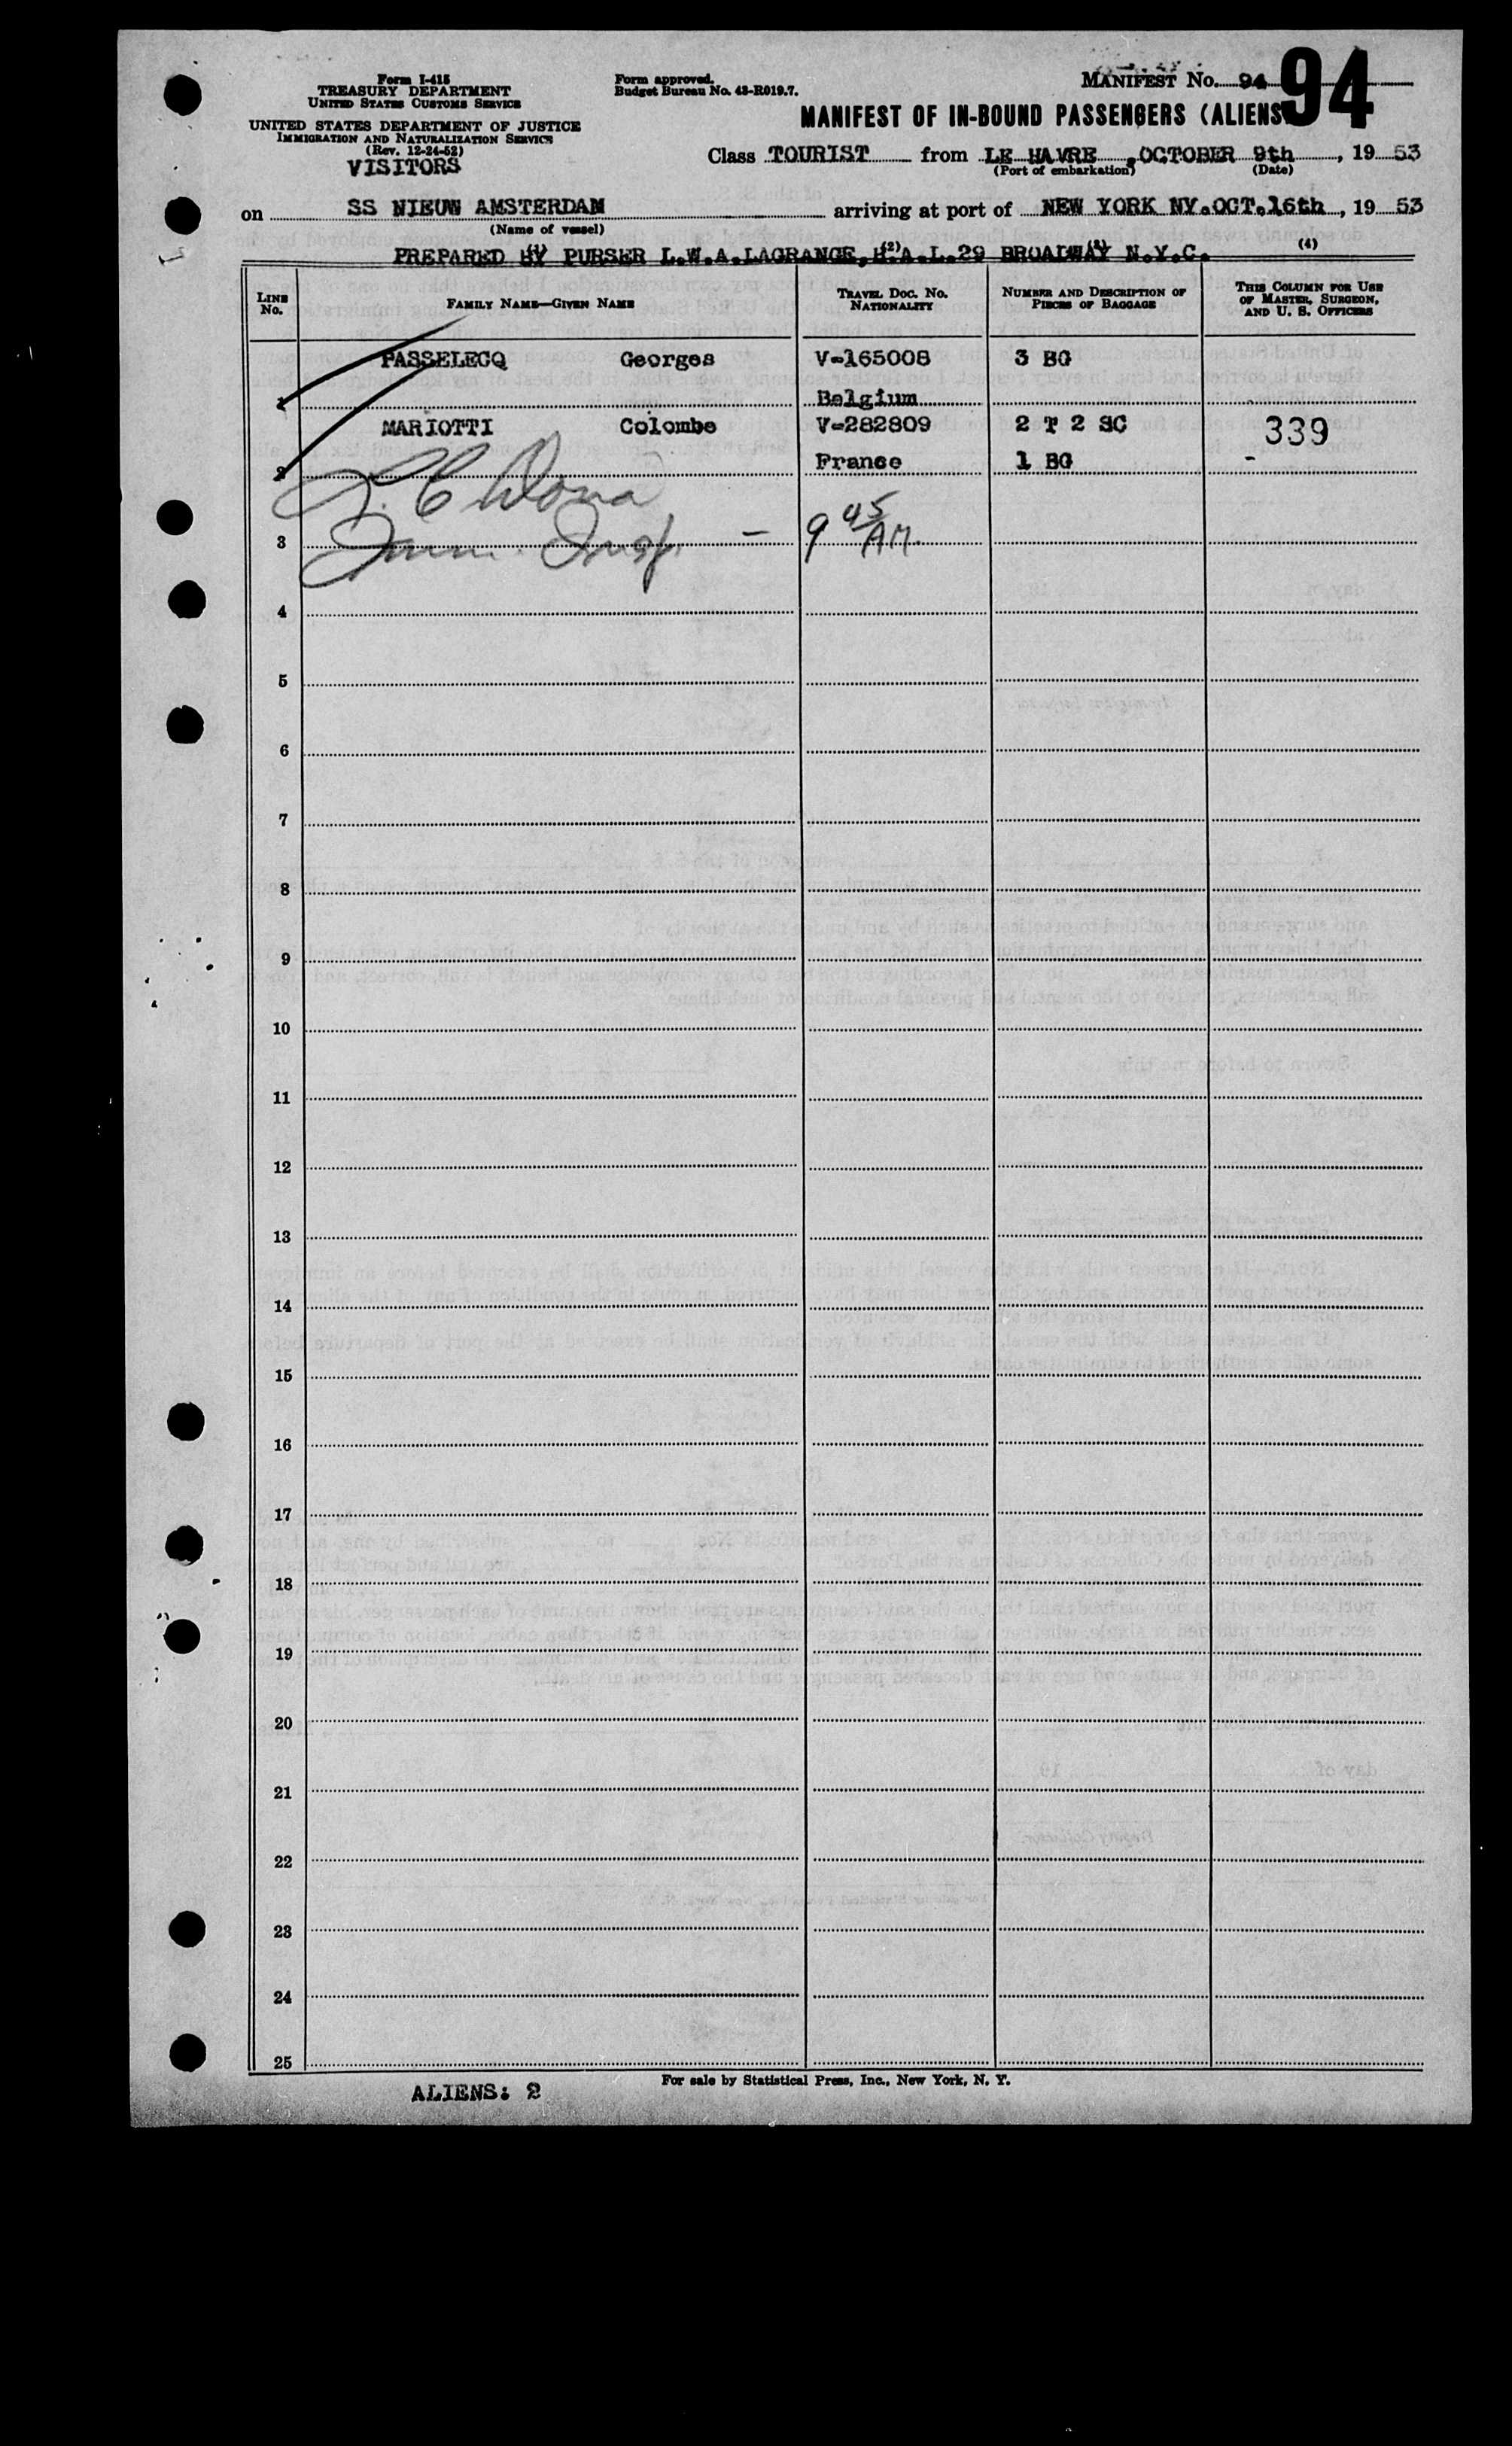 Form I-415
TREASURY DEPARTMENT
UNITED STATES CUSTOMS SERVICE
UNITED STATES DEPARTMENT OF JUSTICE
IMMIGRATION AND NATURALIZATION SERVICE
(Rev. 12-24-52)
VISITORS
Form approved.
Budget Bureau No. 43-R019.7.
MANIFEST No. 94 94
MANIFEST OF IN-BOUND PASSENGERS (ALIENS
Class TOURIST from LE HAVRE , OCTOBER 9th , 19 53
(Port of embarkation) (Date)
on SS NIEUW AMSTERDAM arriving at port of NEW YORK NY.OCT.16th , 19 53
(Name of vessel)
PREPARED BY PURSER L.W.A.LAGRANGE, H.A.L.29 BROADWAY N.Y.C.
(1) (2) (3) (4)
LINE No. FAMILY NAME—GIVEN NAME TRAVEL DOC. NO. NATIONALITY NUMBER AND DESCRIPTION OF PIECES OF BAGGAGE THIS COLUMN FOR USE OF MASTER, SURGEON, AND U. S. OFFICERS
PASSELECQ Georges V-165008 3 BG
1 Belgium
MARIOTTI Colombe V-282809 2 T 2 SC 339
2 France 1 BG -
3 Imm. Insp. - 9 45 AM.
4
5
6
7
8
9
10
11
12
13
14
15
16
17
18
19
20
21
22
23
24
25
ALIENS: 2
For sale by Statistical Press, Inc., New York, N. Y.